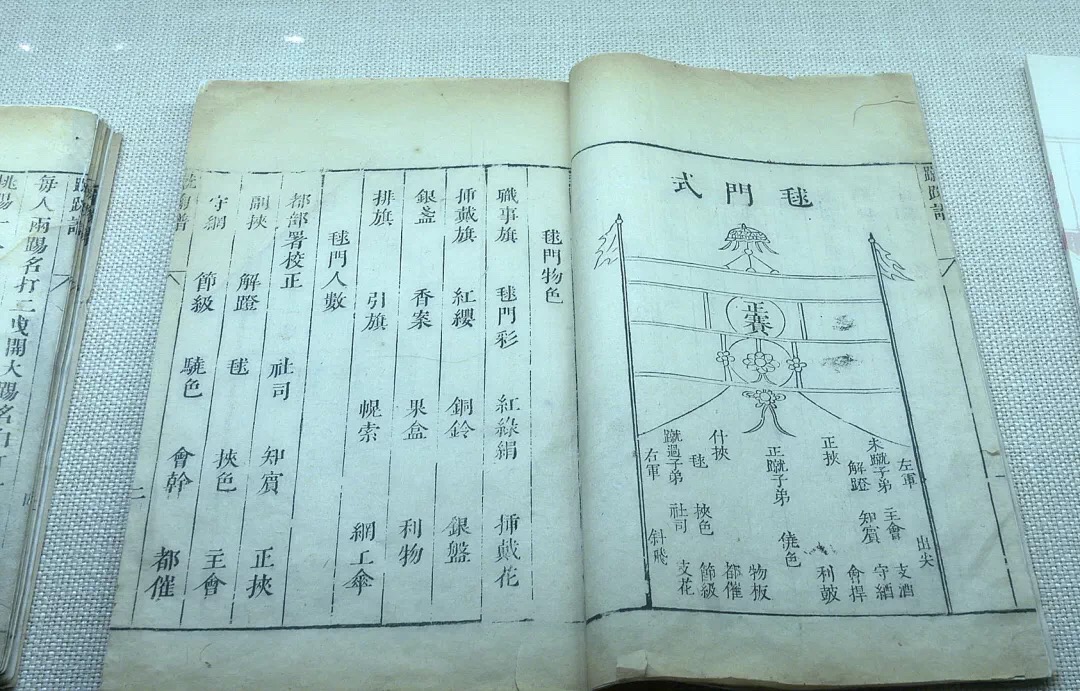 毬門式
正賽
左軍
出尖
未蹴子弟
主會
支酒
解蹬
知賓
守䋞
正挾
會捍
利鼓
正蹴子弟
俵色
物板
什挾
都催
毬
挾色
節級
蹴過子弟
社司
支花
右軍
斜飛
毬門物色
職事旗 毬門彩 紅綠絹 揷戴花
揷戴旗 紅纓 銅鈴 銀盤
銀盞 香案 果盒 利物
排旗 引旗 幌索 網工傘
毬門人數
都部署校正 社司 知賓 正挾
副挾 解蹬 毬 挾色 主會
守網 節級 驍色 會幹 都催
二
每人兩踢名打二曳開大踢名白打